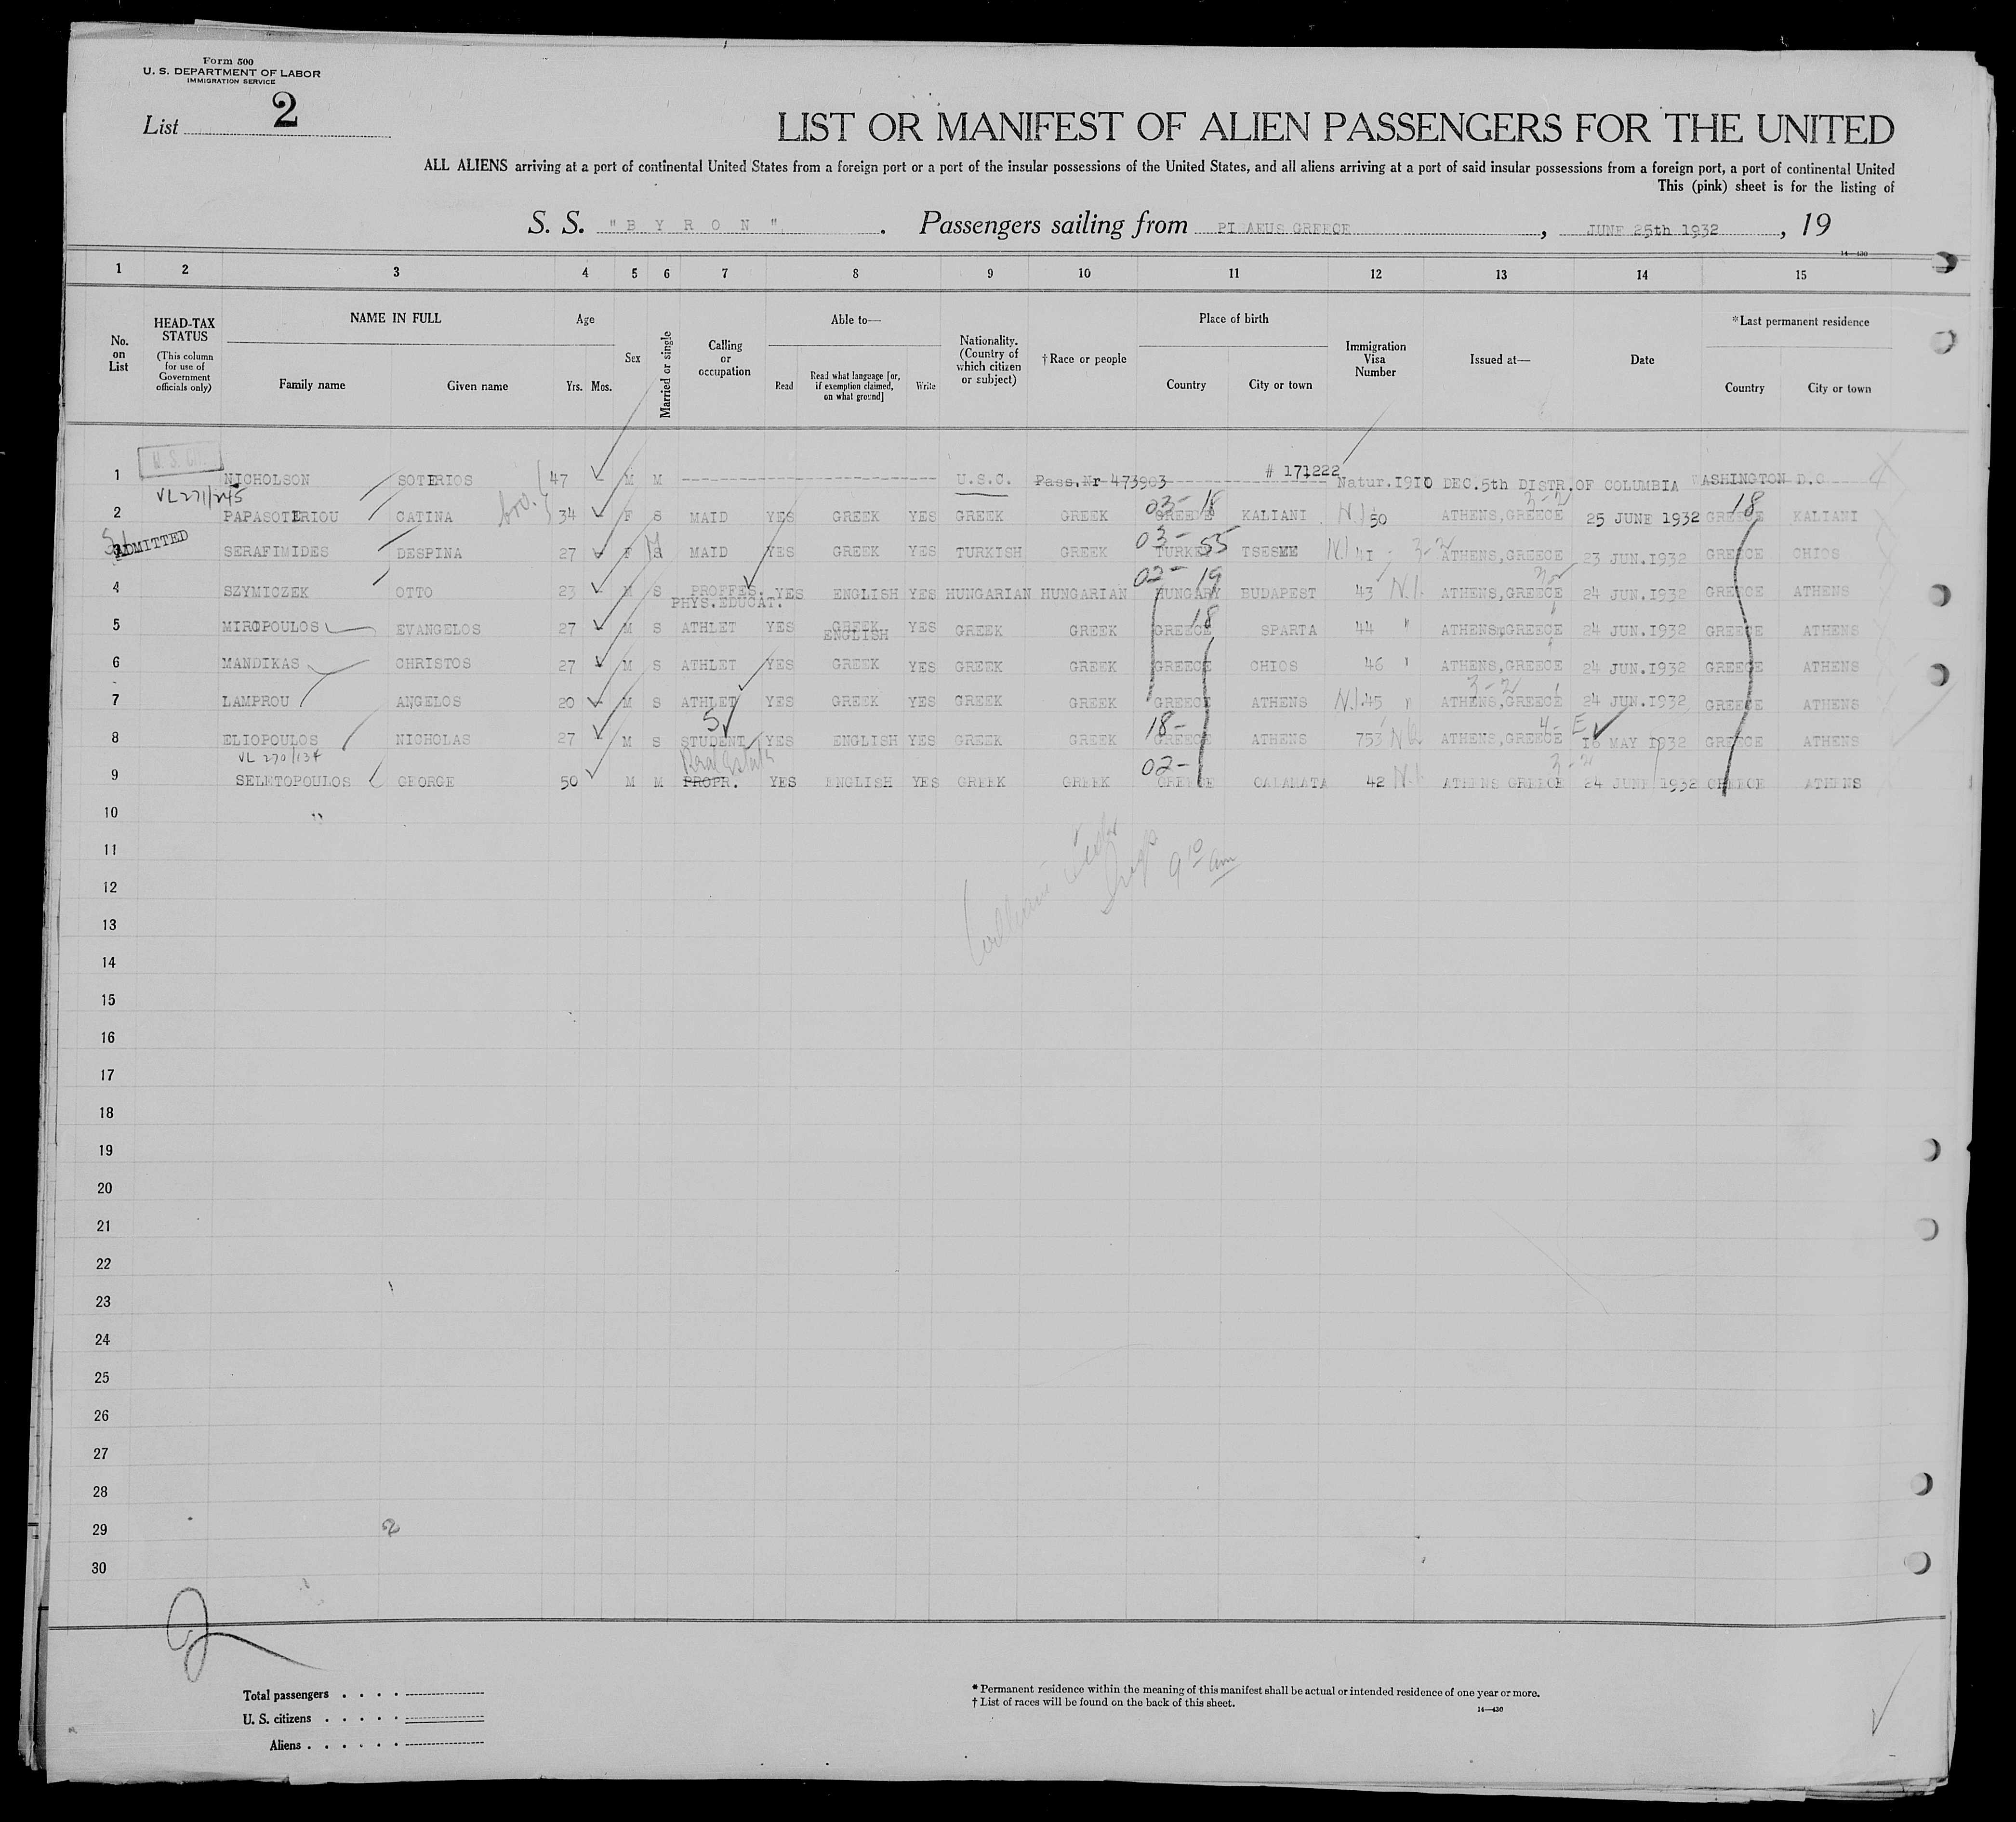 Form 500
U. S. DEPARTMENT OF LABOR
IMMIGRATION SERVICE
List 2
LIST OR MANIFEST OF ALIEN PASSENGERS FOR THE UNITED
ALL ALIENS arriving at a port of continental United States from a foreign port or a port of the insular possessions of the United States, and all aliens arriving at a port of said insular possessions from a foreign port, a port of continental United
This (pink) sheet is for the listing of
S. S. "B Y R O N". Passengers sailing from PIRAEUS GREECE, JUNE 25th 1932, 19
14—430
1 2 3 4 5 6 7 8 9 10 11 12 13 14 15
No. on List
HEAD-TAX STATUS
(This column for use of Government officials only)
NAME IN FULL
Family name Given name
Age
Yrs. Mos.
Sex
Married or single
Calling or occupation
Able to—
Read
Read what language [or, if exemption claimed, on what ground]
Write
Nationality. (Country of which citizen or subject)
†Race or people
Place of birth
Country City or town
Immigration Visa Number
Issued at—
Date
*Last permanent residence
Country City or town
U.S. CIT.
1 NICHOLSON SOTERIOS 47 M M U.S.C. Pass.Nr 473903 # 171222 Natur.1910 DEC.5th DISTR.OF COLUMBIA WASHINGTON D.C
VL 271/245
03- 18 3-2 18
2 PAPASOTERIOU CATINA 34 F S MAID YES GREEK YES GREEK GREEK GREECE KALIANI N.I 50 ATHENS,GREECE 25 JUNE 1932 GREECE KALIANI
ADMITTED
03- 55
3 SERAFIMIDES DESPINA 27 F M MAID YES GREEK YES TURKISH GREEK TURKEY TSESME N.I 41 3-2 ATHENS,GREECE 23 JUN.1932 GREECE CHIOS
02- 19
4 SZYMICZEK OTTO 23 M S PROFFES. PHYS.EDUCAT. YES ENGLISH YES HUNGARIAN HUNGARIAN HUNGARY BUDAPEST 43 N.I. ATHENS,GREECE 24 JUN.1932 GREECE ATHENS
18
5 MIROPOULOS EVANGELOS 27 M S ATHLET YES GREEK ENGLISH YES GREEK GREEK GREECE SPARTA 44 " ATHENS,GREECE 24 JUN.1932 GREECE ATHENS
6 MANDIKAS CHRISTOS 27 M S ATHLET YES GREEK YES GREEK GREEK GREECE CHIOS 46 " ATHENS,GREECE 24 JUN.1932 GREECE ATHENS
3-2
7 LAMPROU ANGELOS 20 M S ATHLET YES GREEK YES GREEK GREEK GREECE ATHENS N.I.45 " ATHENS,GREECE 24 JUN.1932 GREECE ATHENS
5 18- 4-E
8 ELIOPOULOS NICHOLAS 27 M S STUDENT YES ENGLISH YES GREEK GREEK GREECE ATHENS 753 NQ ATHENS,GREECE 16 MAY 1932 GREECE ATHENS
VL 270/134 Real Estate 02- 3-2
9 SELETOPOULOS GEORGE 50 M M PROPR. YES ENGLISH YES GREEK GREEK GREECE CALAMATA 42 N.I. ATHENS GREECE 24 JUNE 1932 GREECE ATHENS
10
11
9 10 am
12
13
14
15
16
17
18
19
20
21
22
23
24
25
26
27
28
29 2
30
Total passengers . . . .
U. S. citizens . . . . .
Aliens . . . . . .
* Permanent residence within the meaning of this manifest shall be actual or intended residence of one year or more.
† List of races will be found on the back of this sheet.
14—430